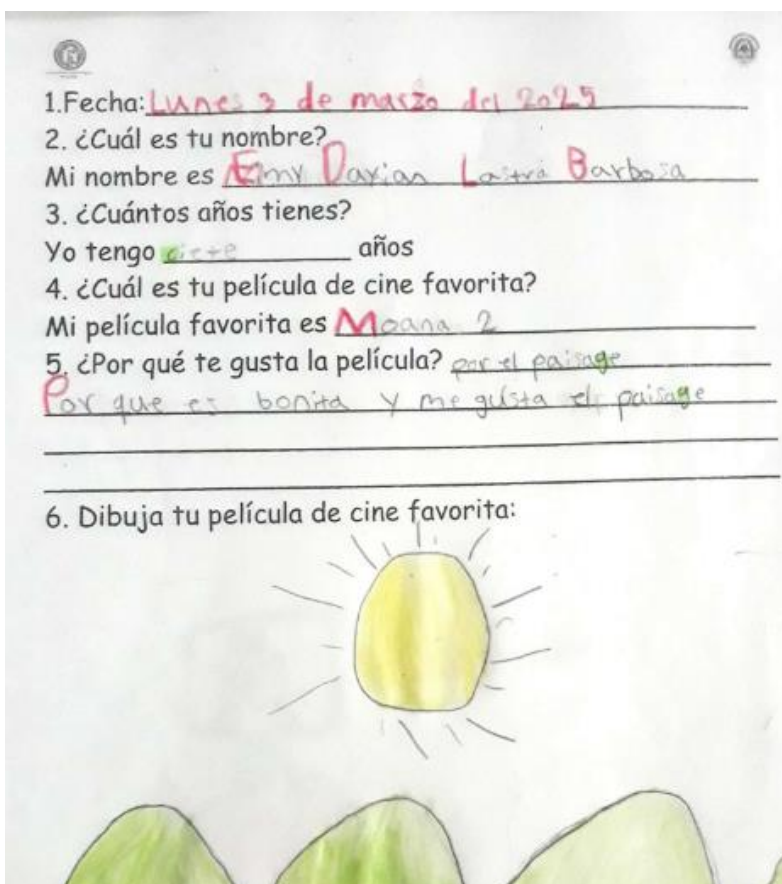 1.Fecha: Lunes 3 de marzo del 2025
2. ¿Cuál es tu nombre?
Mi nombre es Eimy Darian Lastra Barbosa
3. ¿Cuántos años tienes?
Yo tengo ciete años
4. ¿Cuál es tu película de cine favorita?
Mi película favorita es Moana 2
5. ¿Por qué te gusta la película? por el paisage
Por que es bonita y me gusta el paisage
6. Dibuja tu película de cine favorita: